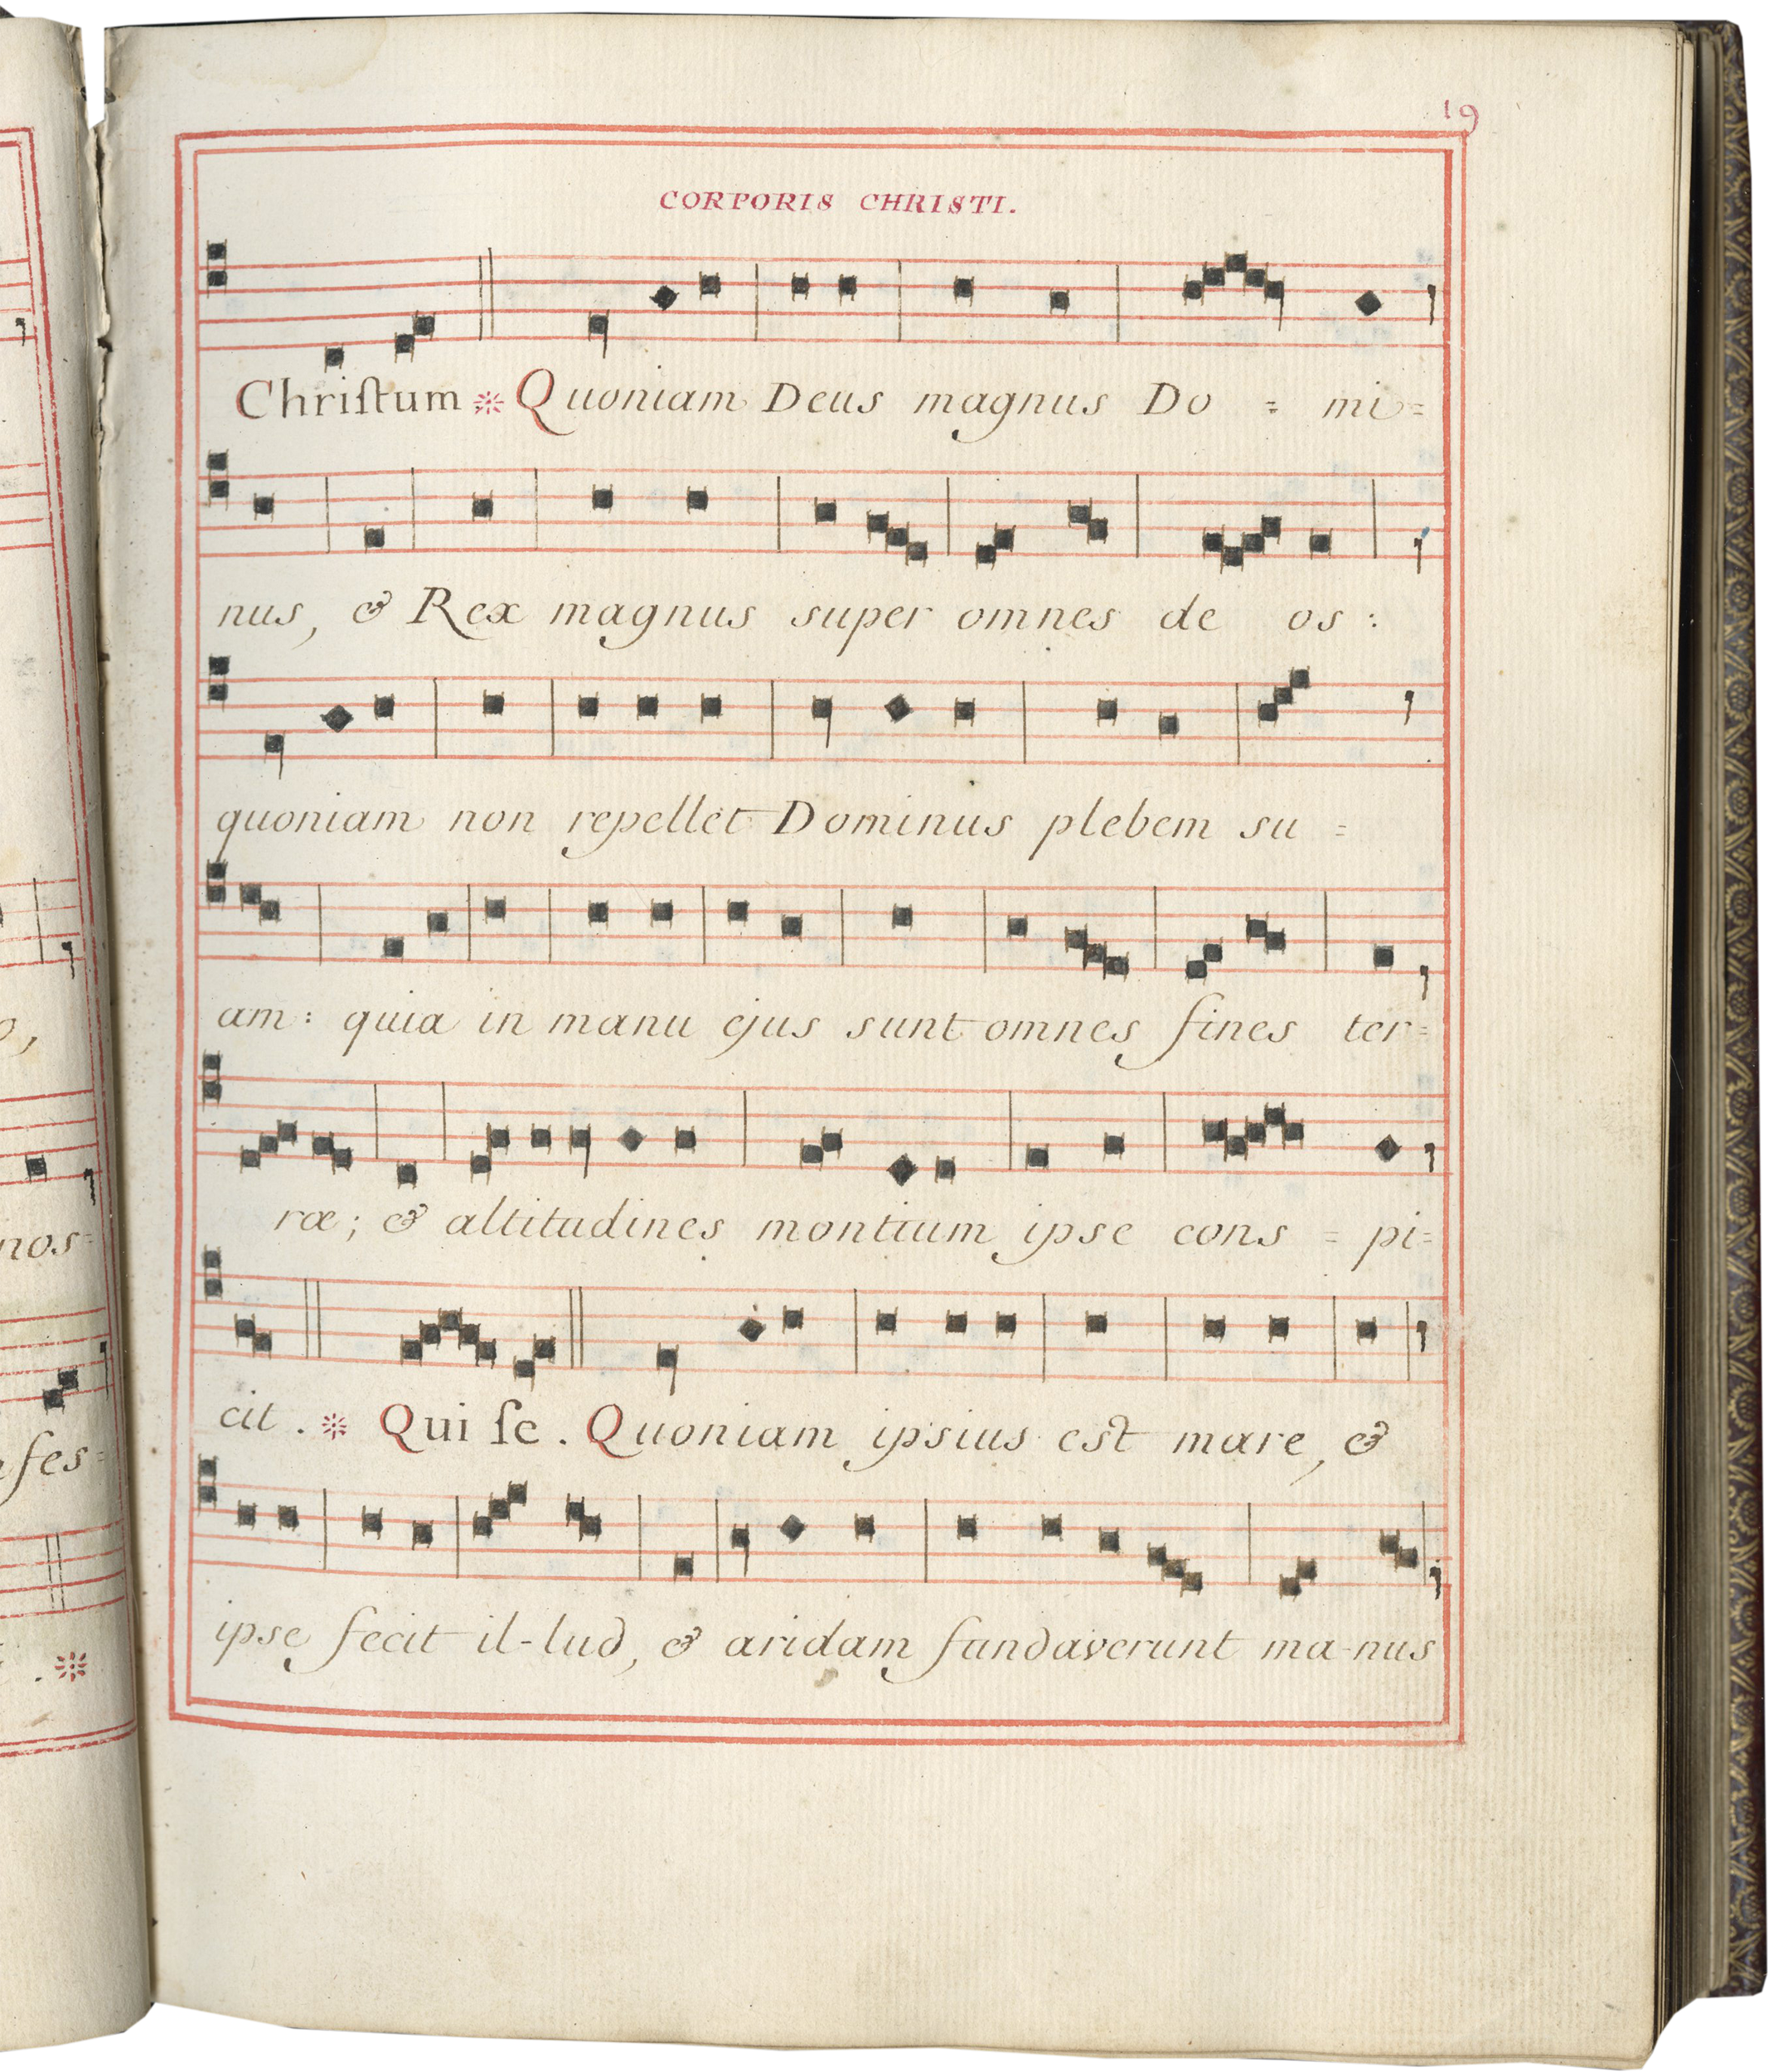 19
CORPORIS CHRISTI.
Chriſtum * Quoniam Deus magnus Do = mi=
nus, & Rex magnus super omnes de os :
quoniam non repellet Dominus plebem su =
am : quia in manu ejus sunt omnes fines ter=
ræ ; & altitudines montium ipse cons = pi=
cit . * Qui ſe . Quoniam ipsius est mare, &
ipse fecit il-lud, & aridam fundaverunt ma-nus
nos=
fes=
. *